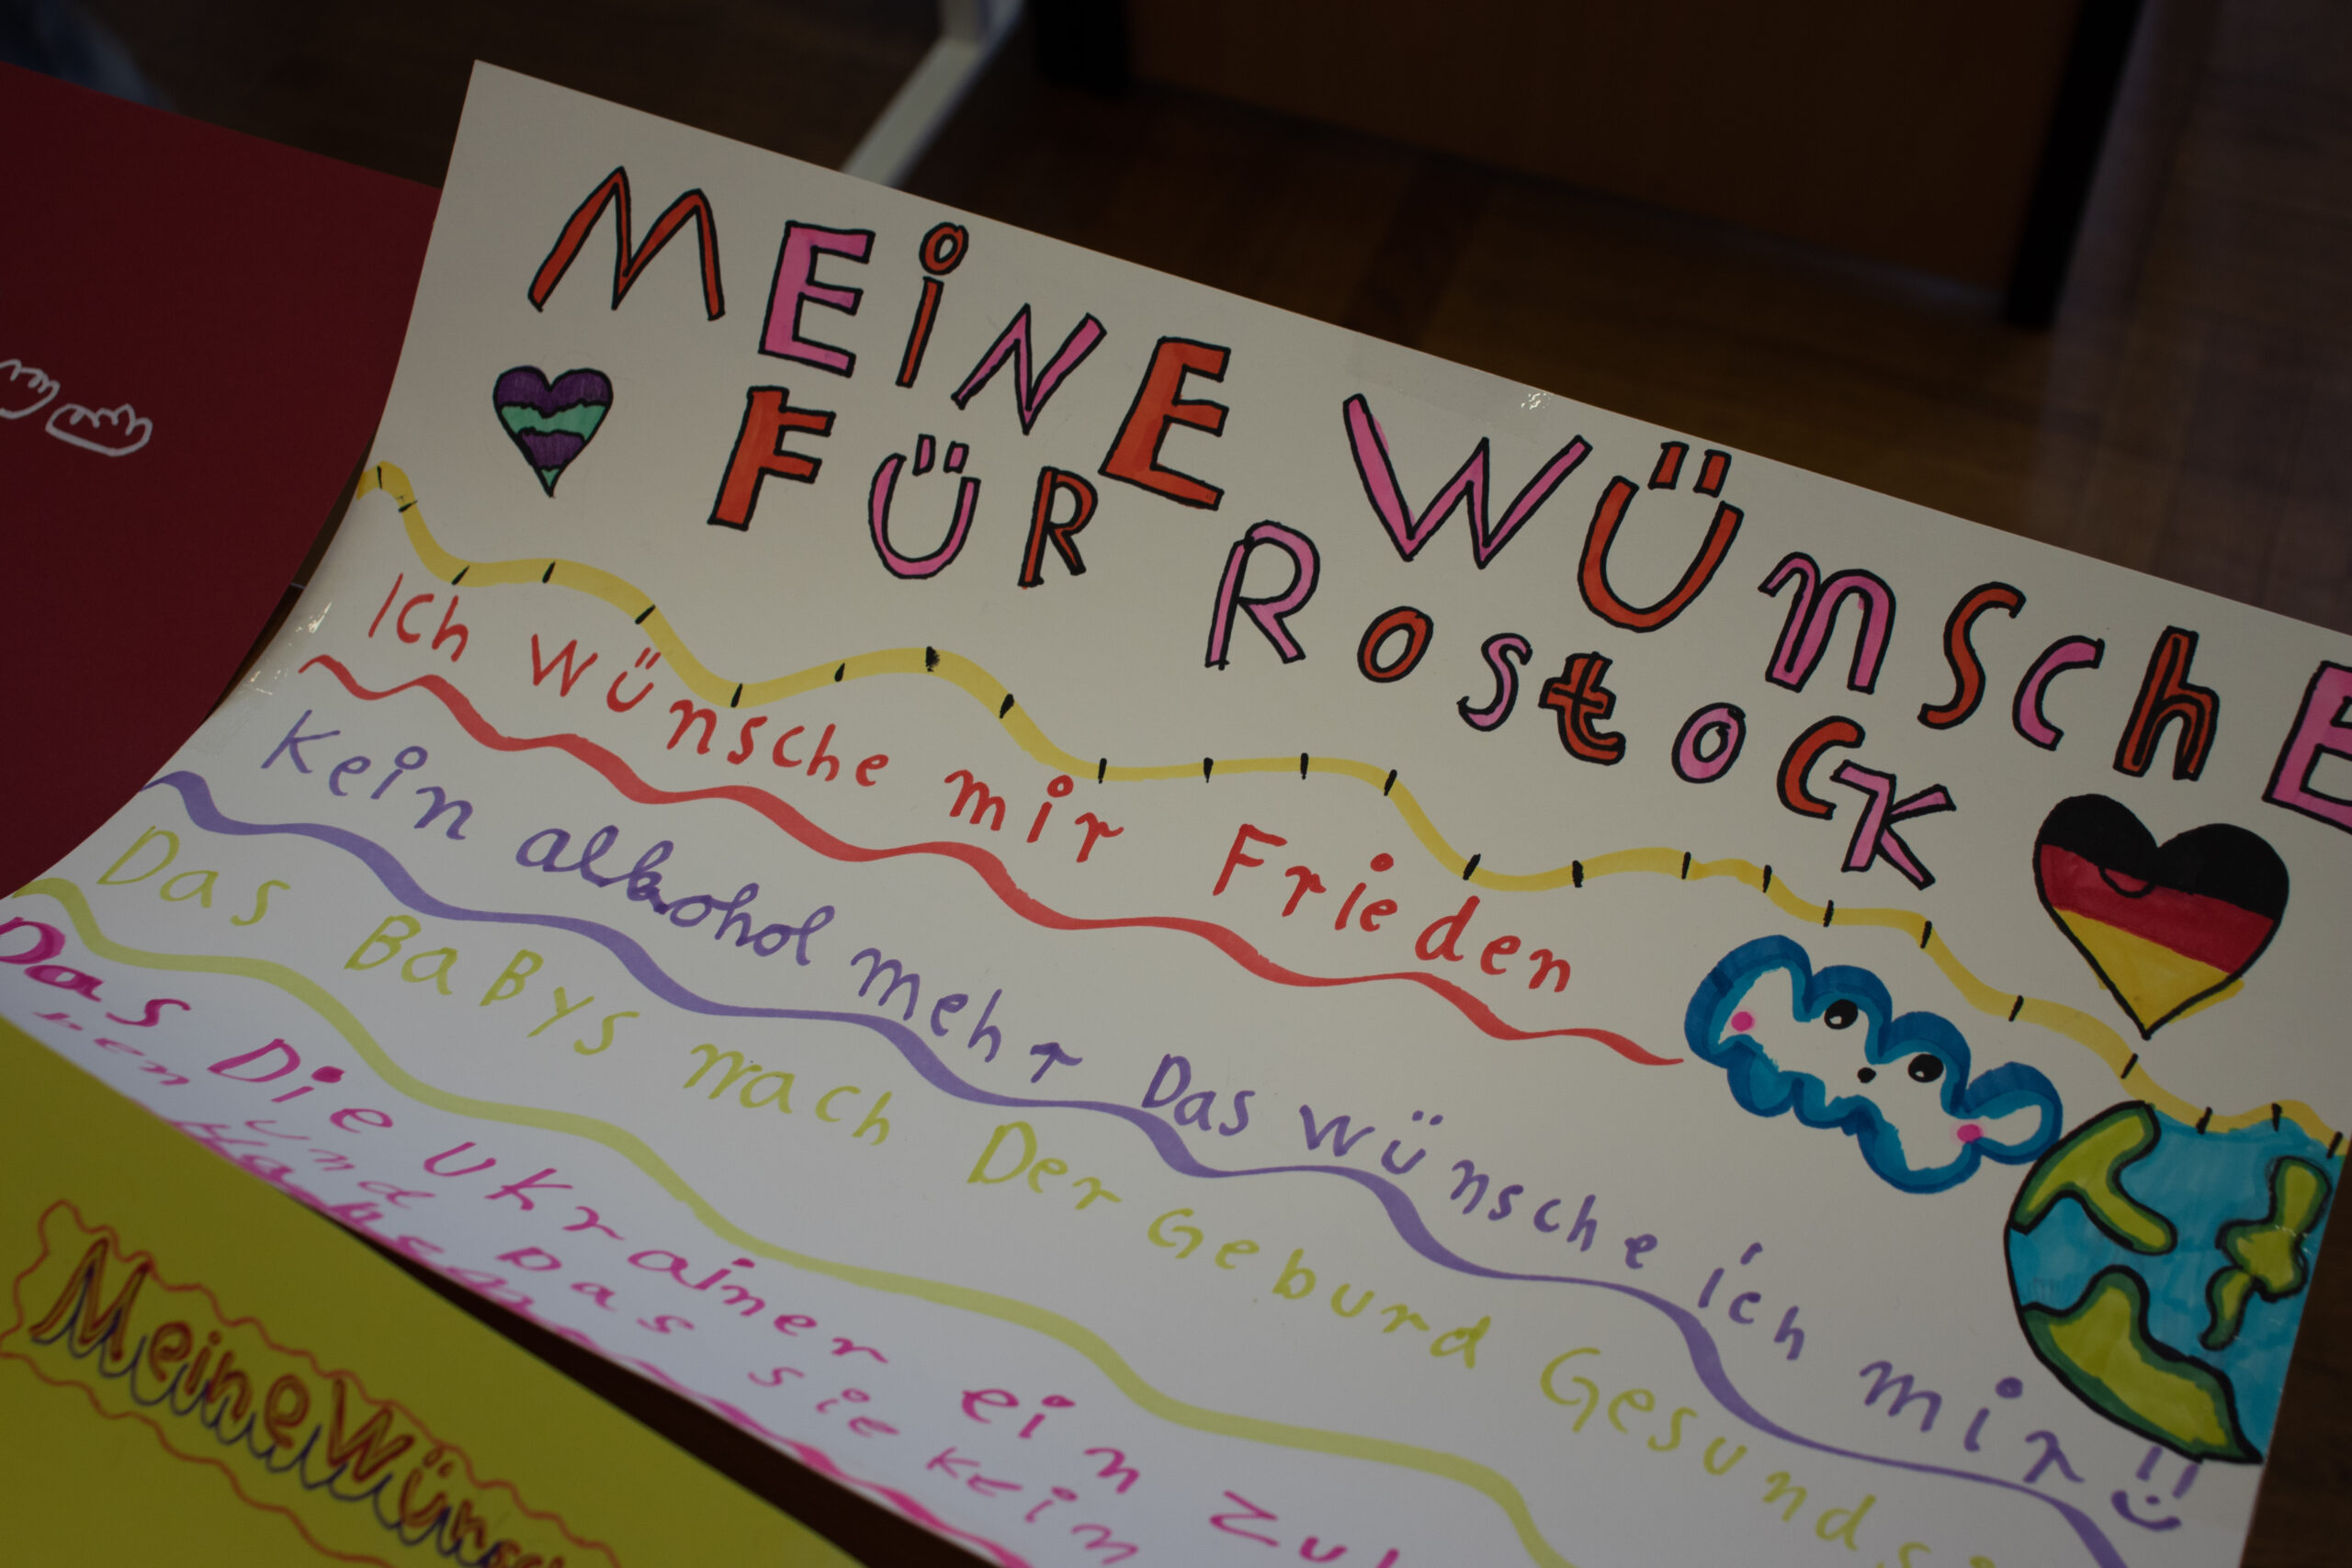 MEiNE WÜnschE
FÜR RostocK
Ich wünsche mir Frieden
Kein alkohol mehr Das wünsche ich mir!!
Das BaBys nach Der Geburd Gesund
Das Die Ukrainer ein
und Das sie Kein
Haben
Meine